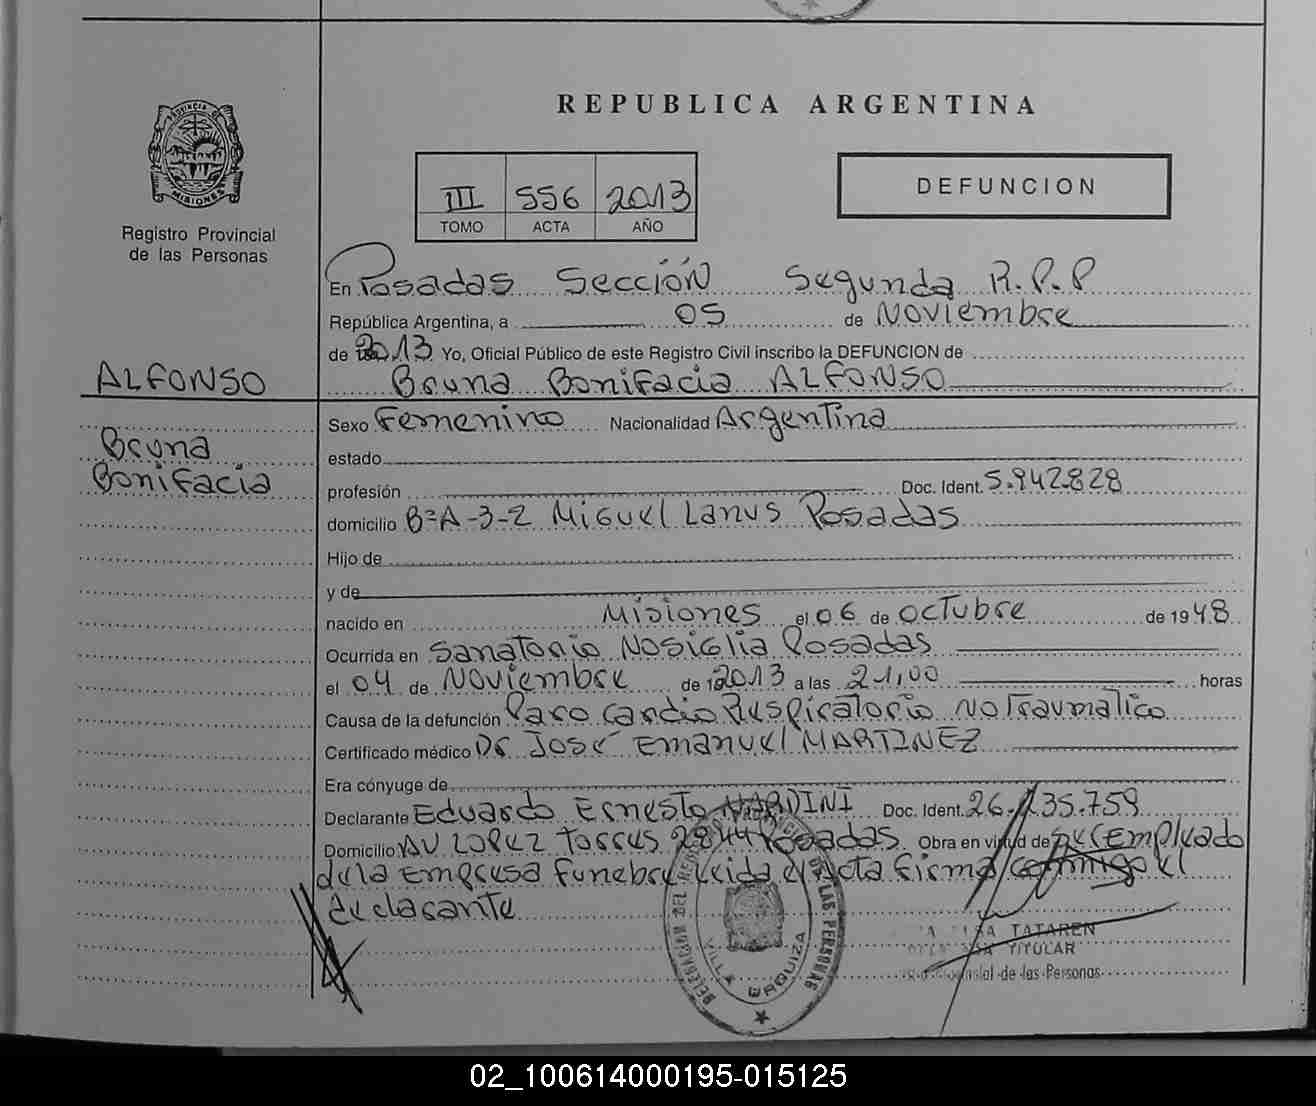 REPUBLICA ARGENTINA
PROVINCIA D
MISIONES
Registro Provincial
de las Personas
III 556 2013
TOMO ACTA AÑO
DEFUNCION
En Posadas Sección Segunda R.P.P
República Argentina, a 05 de Noviembre
de 2013 Yo, Oficial Público de este Registro Civil inscribo la DEFUNCION de
ALFONSO
Bruna Bonifacia ALFONSO
Bruna
Bonifacia
Sexo Femenino Nacionalidad Argentina
estado
profesión Doc. Ident. 5.942.828
domicilio B=A-3-2 Miguel Lanus Posadas
Hijo de
y de
nacido en Misiones el 06 de octubre de 1948
Ocurrida en Sanatorio Nosiglia Posadas
el 04 de Noviembre de 2013 a las 21,00 horas
Causa de la defunción Paro Cardio Respiratorio no Traumatico
Certificado médico Dr José Emanuel MARTINEZ
Era cónyuge de
Declarante Eduardo Ernesto NARDINI Doc. Ident. 26.235.759
Domicilio AV LOPEZ Torres 2844 Posadas. Obra en virtud de ser Empleado
de la Empresa Funebre Leida el Acta firma conmigo el
declarante
DELEGACION DEL REGISTRO PROVINCIAL DE LAS PERSONAS
VILLA URQUIZA
TATAREN
TITULAR
de las Personas
02_100614000195-015125